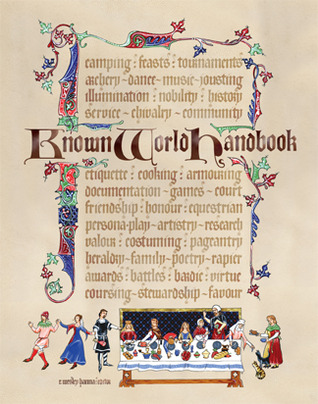 camping : feasts : tournaments
archery - dance - music - jousting
illumination : nobility : history
service - chivalry - community
Known World Handbook
etiquette : cooking : armouring
documentation - games - court
friendship : honour : equestrian
persona-play - artistry - research
valour : costuming : pageantry
heraldry - family - poetry - rapier
awards : battles : bardic : virtue
coursing - stewardship - favour